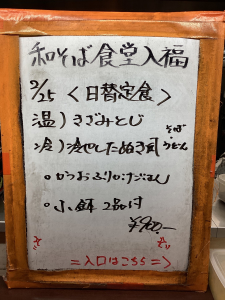 和そば食堂入福
2/25 <日替定食>
温) きざみとじ
冷) 冷やしたぬき
そば・うどん
。かつおふりかけごはん
。小鉢 2品付
¥900.-
=入口はこちら=>